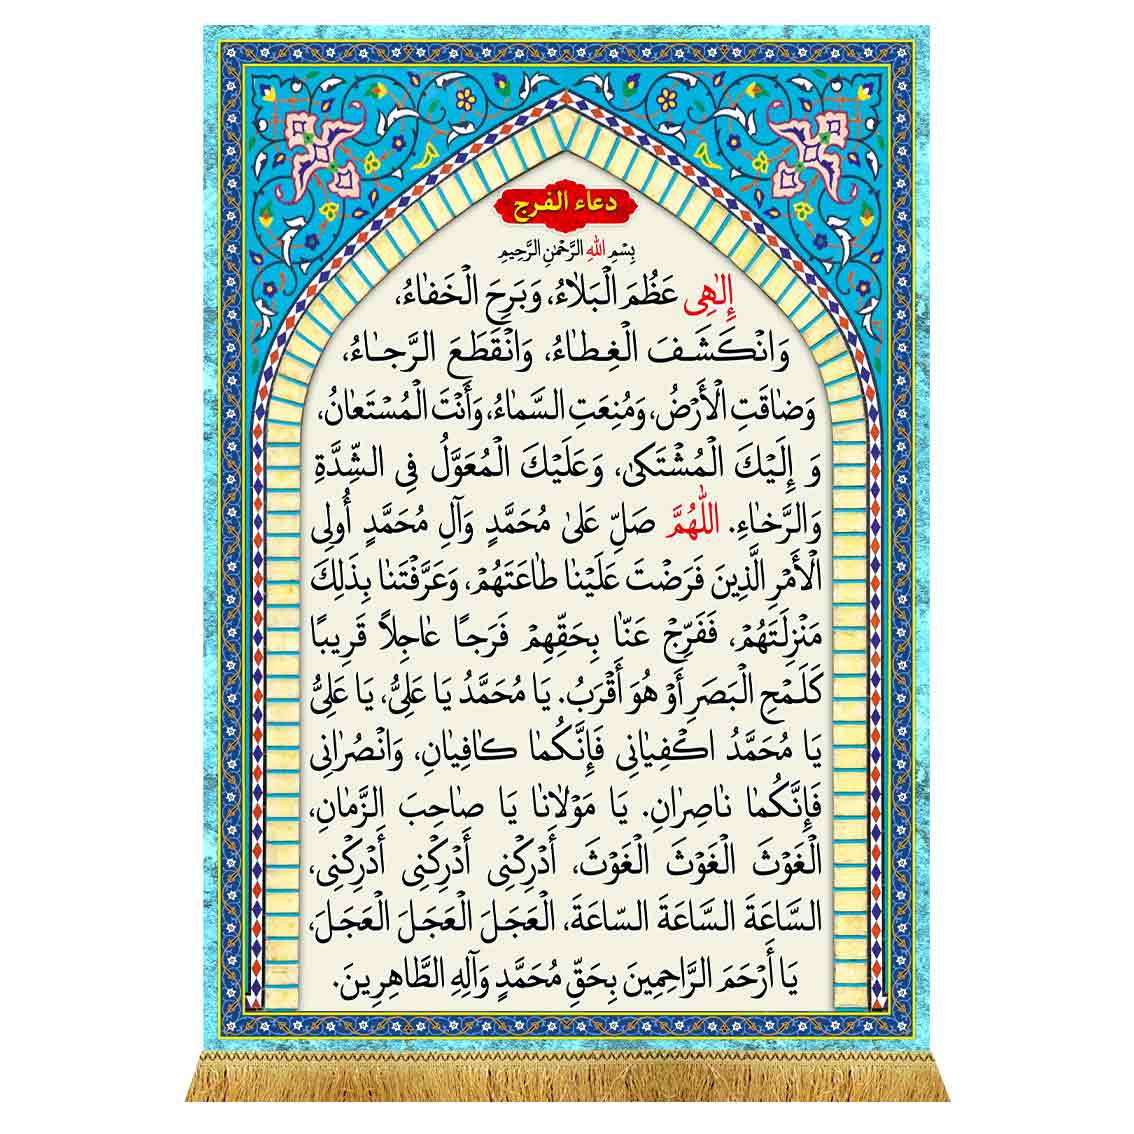 دعاء الفرج
بِسْمِ اللهِ الرَّحْمٰنِ الرَّحِيمِ
إِلٰهِى عَظُمَ الْبَلاٰءُ، وَبَرِحَ الْخَفٰاءُ،
وَانْكَشَفَ الْغِطٰاءُ، وَانْقَطَعَ الرَّجٰاءُ،
وَضٰاقَتِ الْأَرْضُ، وَمُنِعَتِ السَّمٰاءُ، وَأَنْتَ الْمُسْتَعٰانُ،
وَ إِلَيْكَ الْمُشْتَكىٰ، وَعَلَيْكَ الْمُعَوَّلُ فِى الشِّدَّةِ
وَالرَّخٰاءِ. اللّٰهُمَّ صَلِّ عَلىٰ مُحَمَّدٍ وَآلِ مُحَمَّدٍ أُولِى
الْأَمْرِ الَّذِينَ فَرَضْتَ عَلَيْنٰا طٰاعَتَهُمْ، وَعَرَّفْتَنٰا بِذَلِكَ
مَنْزِلَتَهُمْ، فَفَرِّجْ عَنّٰا بِحَقِّهِمْ فَرَجًا عٰاجِلاً قَرِيبًا
كَلَمْحِ الْبَصَرِ أَوْ هُوَ أَقْرَبُ. يٰا مُحَمَّدُ يٰا عَلِىُّ، يٰا عَلِىُّ
يٰا مُحَمَّدُ اكْفِيٰانِى فَإِنَّكُمٰا كٰافِيٰانِ، وَانْصُرٰانِى
فَإِنَّكُمٰا نٰاصِرٰانِ. يٰا مَوْلاٰنٰا يٰا صٰاحِبَ الزَّمٰانِ،
الْغَوْثَ الْغَوْثَ الْغَوْثَ، أَدْرِكْنِى أَدْرِكْنِى أَدْرِكْنِى،
السَّاعَةَ السَّاعَةَ السّاعَةَ، الْعَجَلَ الْعَجَلَ الْعَجَلَ،
يٰا أَرْحَمَ الرَّاحِمِينَ بِحَقِّ مُحَمَّدٍ وَآلِهِ الطَّاهِرِينَ.